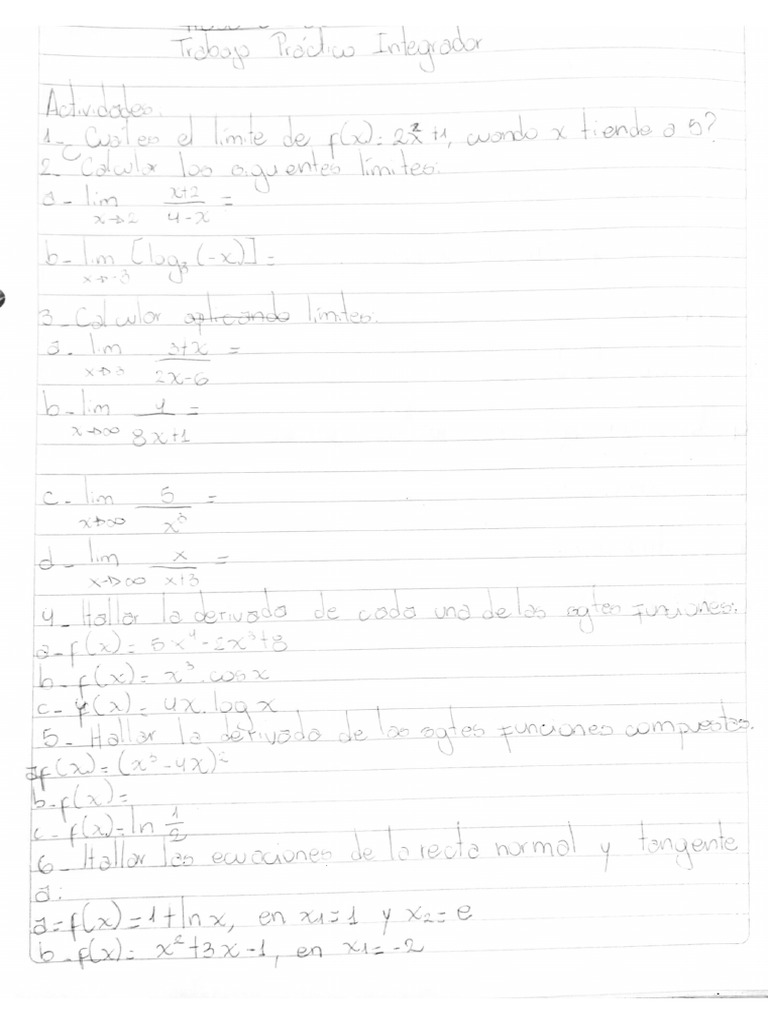 Trabajo Práctico Integrador
Actividades.
1- Cual es el límite de f(x)= 2x²+1, cuando x tiende a 5?
2- Calcular los siguientes límites:
a- lim x→2 (x+2)/(4-x) =
b- lim x→-3 [log₃(-x)]=
3- Calcular aplicando límites.
a- lim x→3 (3+x)/(2x-6) =
b- lim x→∞ 4/(8x+1) =
c- lim x→∞ 5/x³ =
d- lim x→∞ x/(x+3) =
4- Hallar la derivada de cada una de las sgtes funciones.
a- f(x)= 5x⁴-2x³+8
b- f(x)= x³.cosx
c- f(x)= 4x.log x
5- Hallar la derivada de las sgtes funciones compuestas.
a f(x)=(x³-4x)²
b- f(x)=
c- f(x)=ln 1/2
6- Hallar las ecuaciones de la recta normal y tangente
a:
a= f(x)=1+ln x, en x1=1 y x2= e
b- f(x)= x²+3x-1, en x1=-2